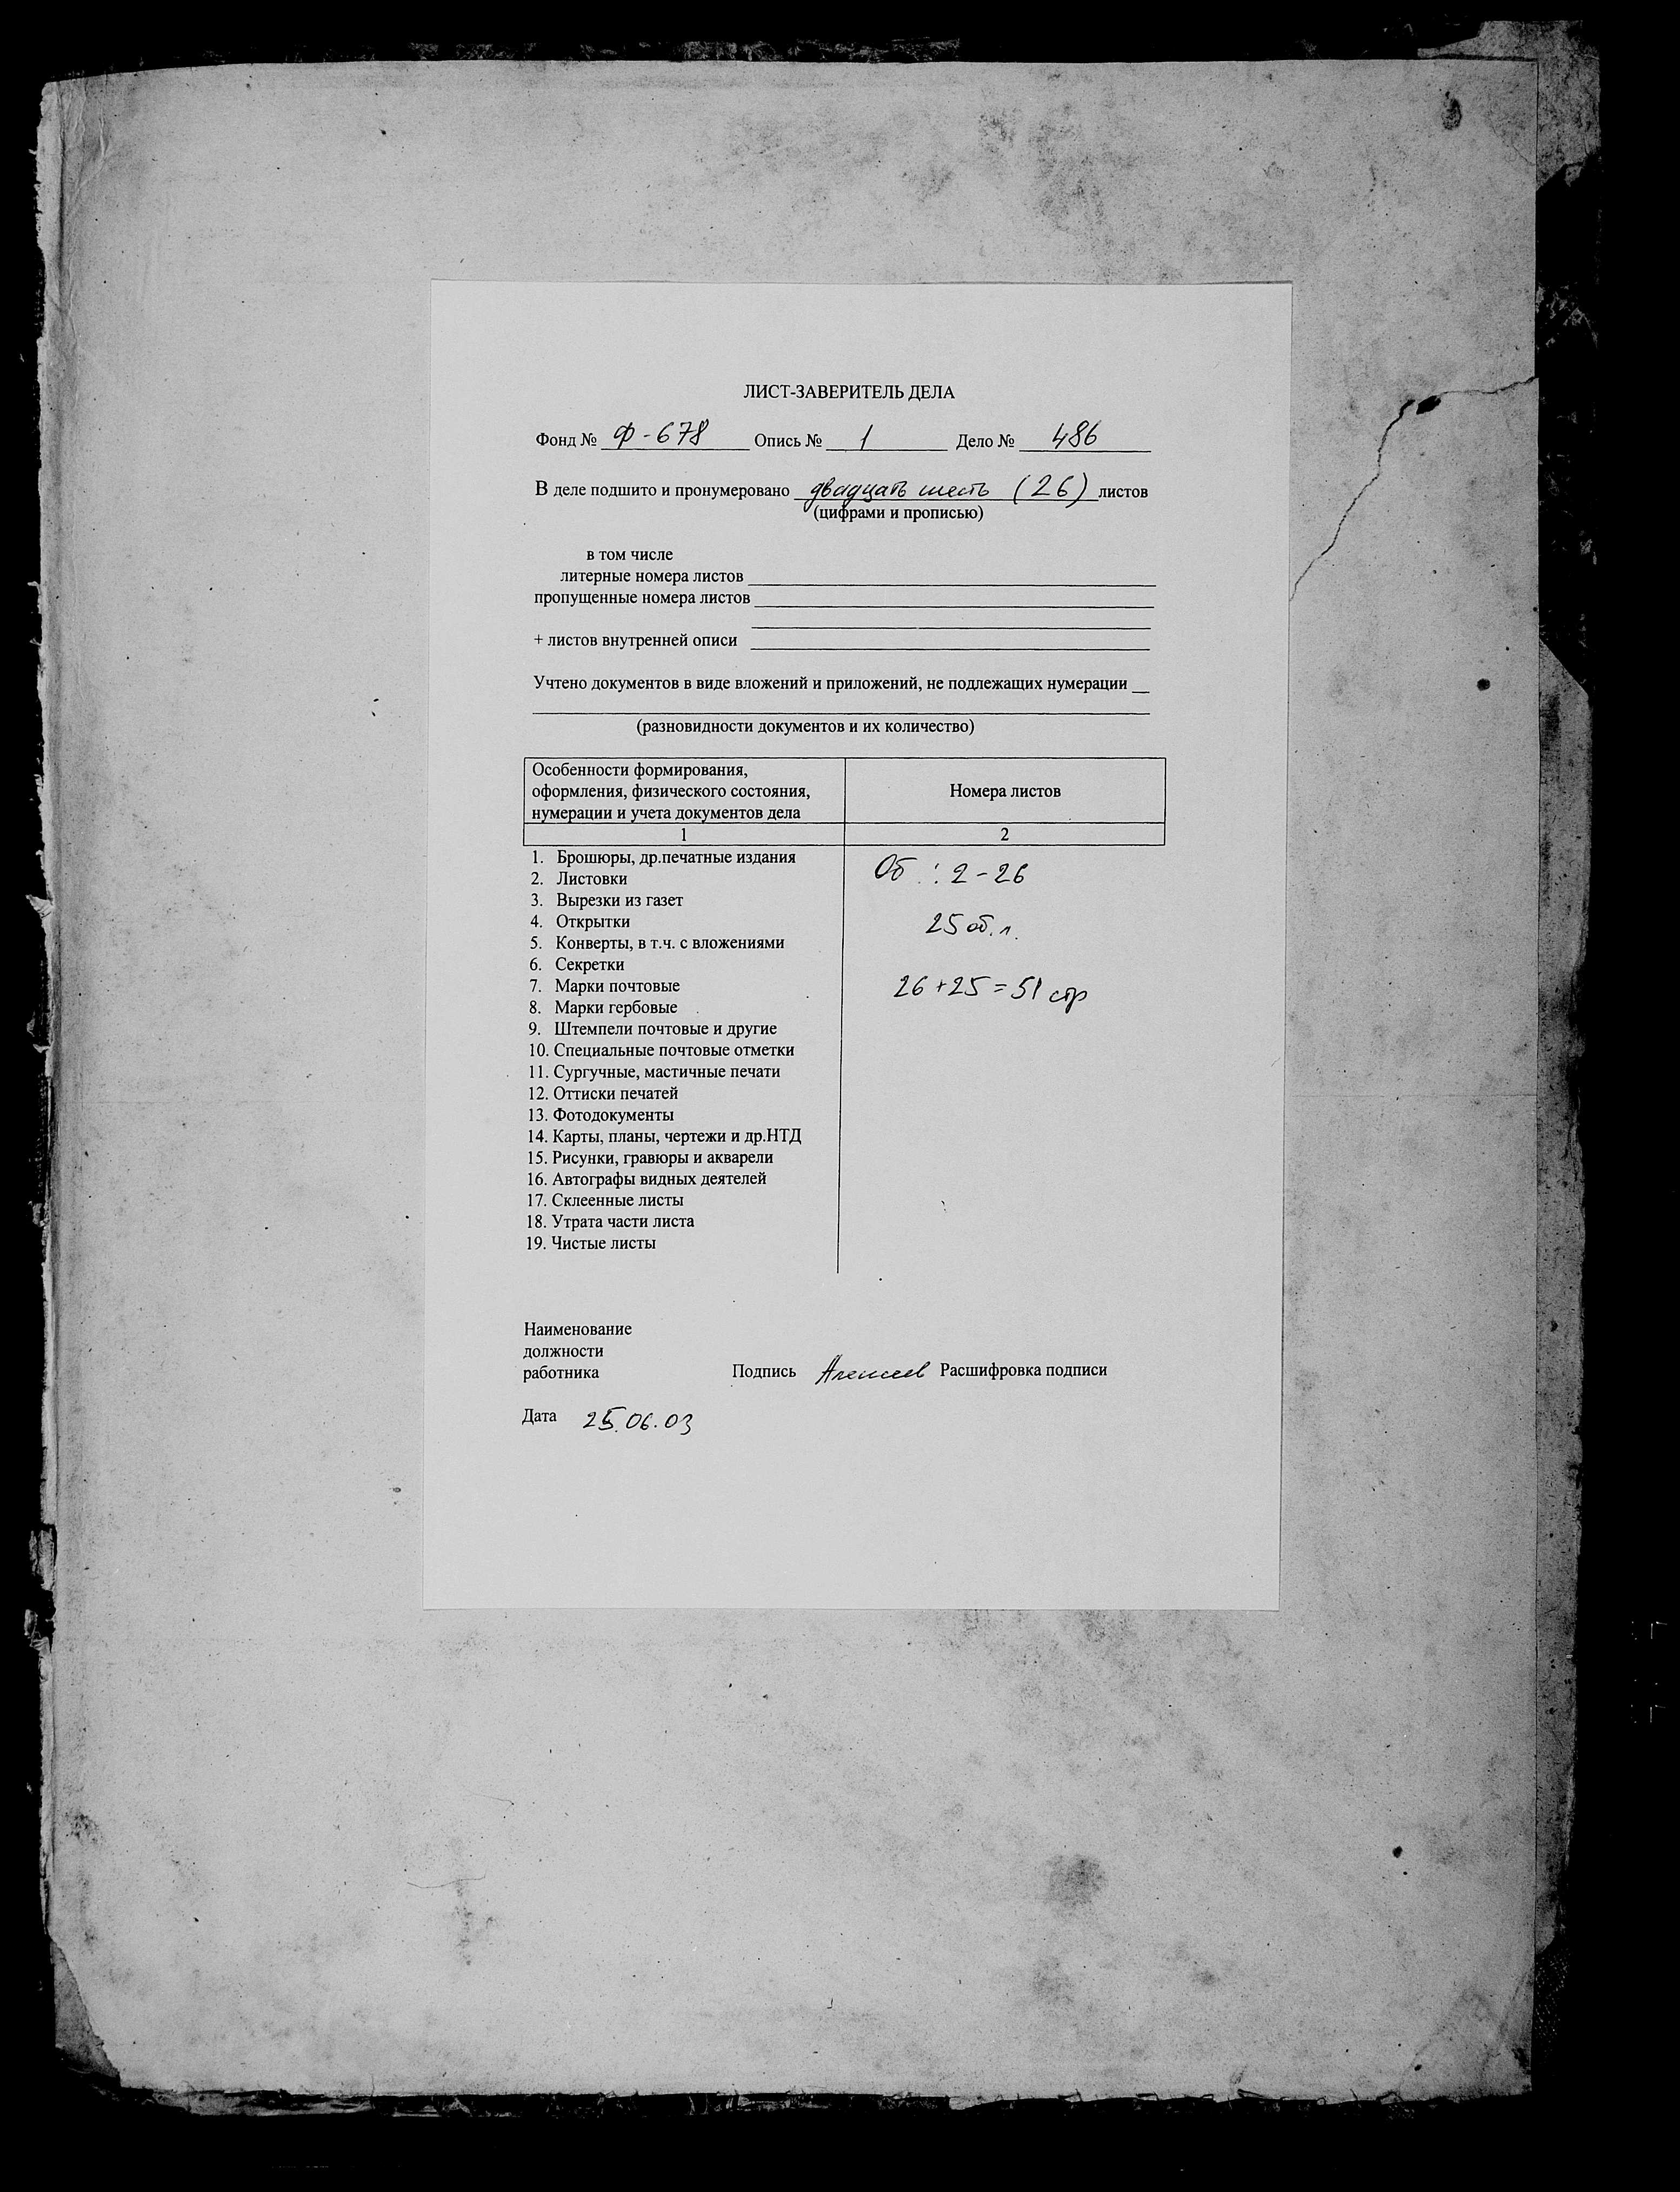 ЛИСТ-ЗАВЕРИТЕЛЬ ДЕЛА
Фонд № Ф-678 Опись № 1 Дело № 486
В деле подшито и пронумеровано двадцать шесть (26) листов
(цифрами и прописью)
в том числе
литерные номера листов
пропущенные номера листов
+ листов внутренней описи
Учтено документов в виде вложений и приложений, не подлежащих нумерации
(разновидности документов и их количество)
Особенности формирования,
оформления, физического состояния,
нумерации и учета документов дела
Номера листов
1 2
1. Брошюры, др.печатные издания
2. Листовки
3. Вырезки из газет
4. Открытки
5. Конверты, в т.ч. с вложениями
6. Секретки
7. Марки почтовые
8. Марки гербовые
9. Штемпели почтовые и другие
10. Специальные почтовые отметки
11. Сургучные, мастичные печати
12. Оттиски печатей
13. Фотодокументы
14. Карты, планы, чертежи и др.НТД
15. Рисунки, гравюры и акварели
16. Автографы видных деятелей
17. Склеенные листы
18. Утрата части листа
19. Чистые листы
Об : 2-26
25 об. л.
26+25=51 стр
Наименование
должности
работника Подпись Расшифровка подписи
Дата 25.06.03